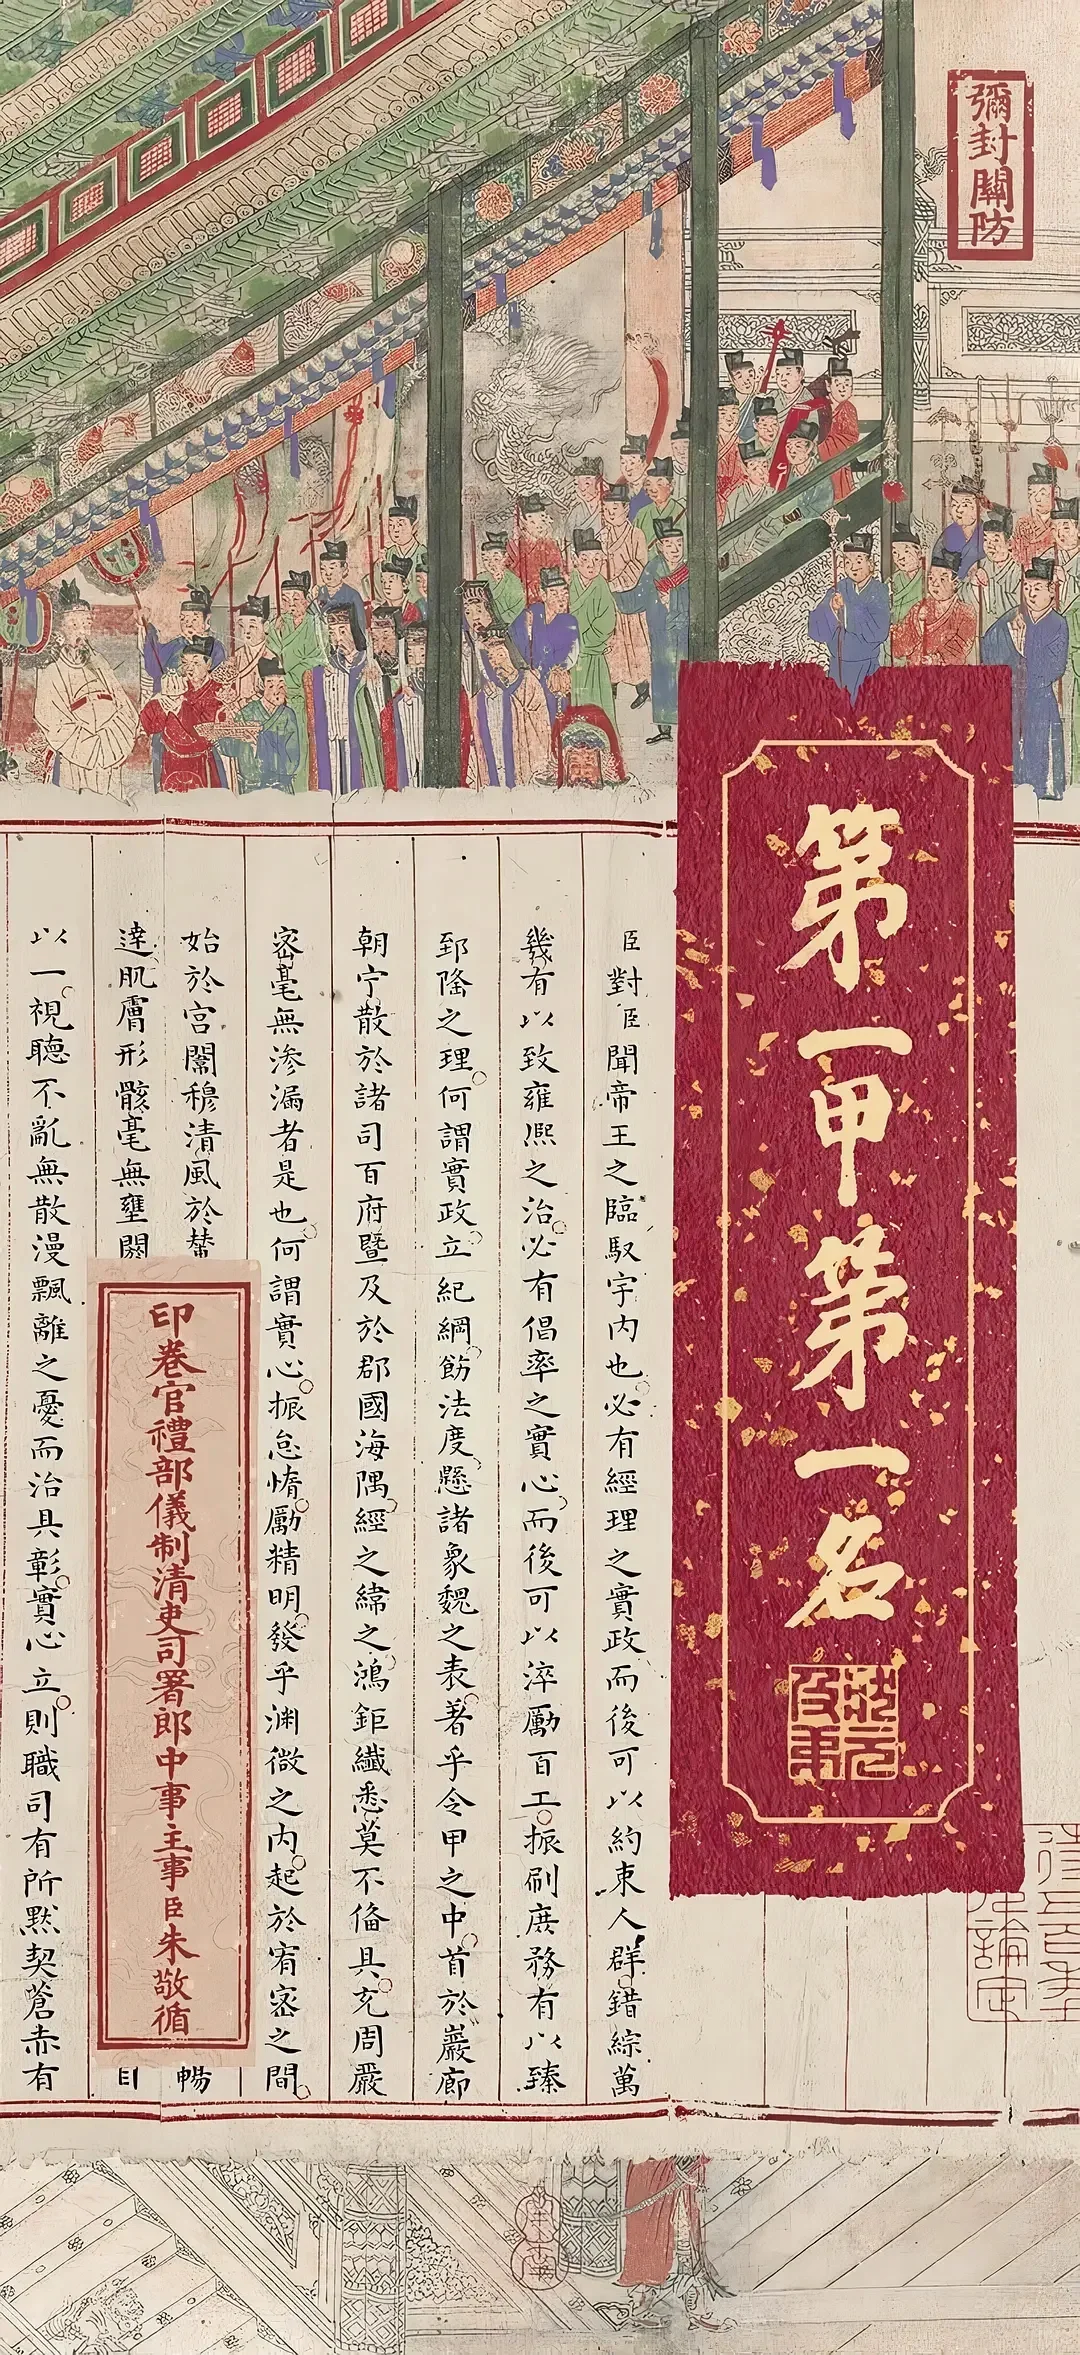 彌封關防
第一甲第一名
臣對臣聞帝王之臨馭宇內也必有經理之實政而後可以約束人群錯綜萬
幾有以致雍熙之治必有倡率之實心而後可以淬勵百工振刷庶務有以臻
郅隆之理何謂實政立紀綱飭法度懸諸象魏之表著乎令甲之中首於巖廊
朝宁散於諸司百府暨及於郡國海隅經之緯之鴻鉅纖悉莫不備具充周嚴
密毫無滲漏者是也何謂實心振怠惰勵精明發乎淵微之內起於宥密之間
始於宮闈穆清風於輦
暢
達肌膚形骸毫無壅閼
以一視聽不亂無散漫飄離之憂而治具彰實心立則職司有所默契蒼赤有
印卷官禮部儀制清吏司署郎中事主事臣朱敬循